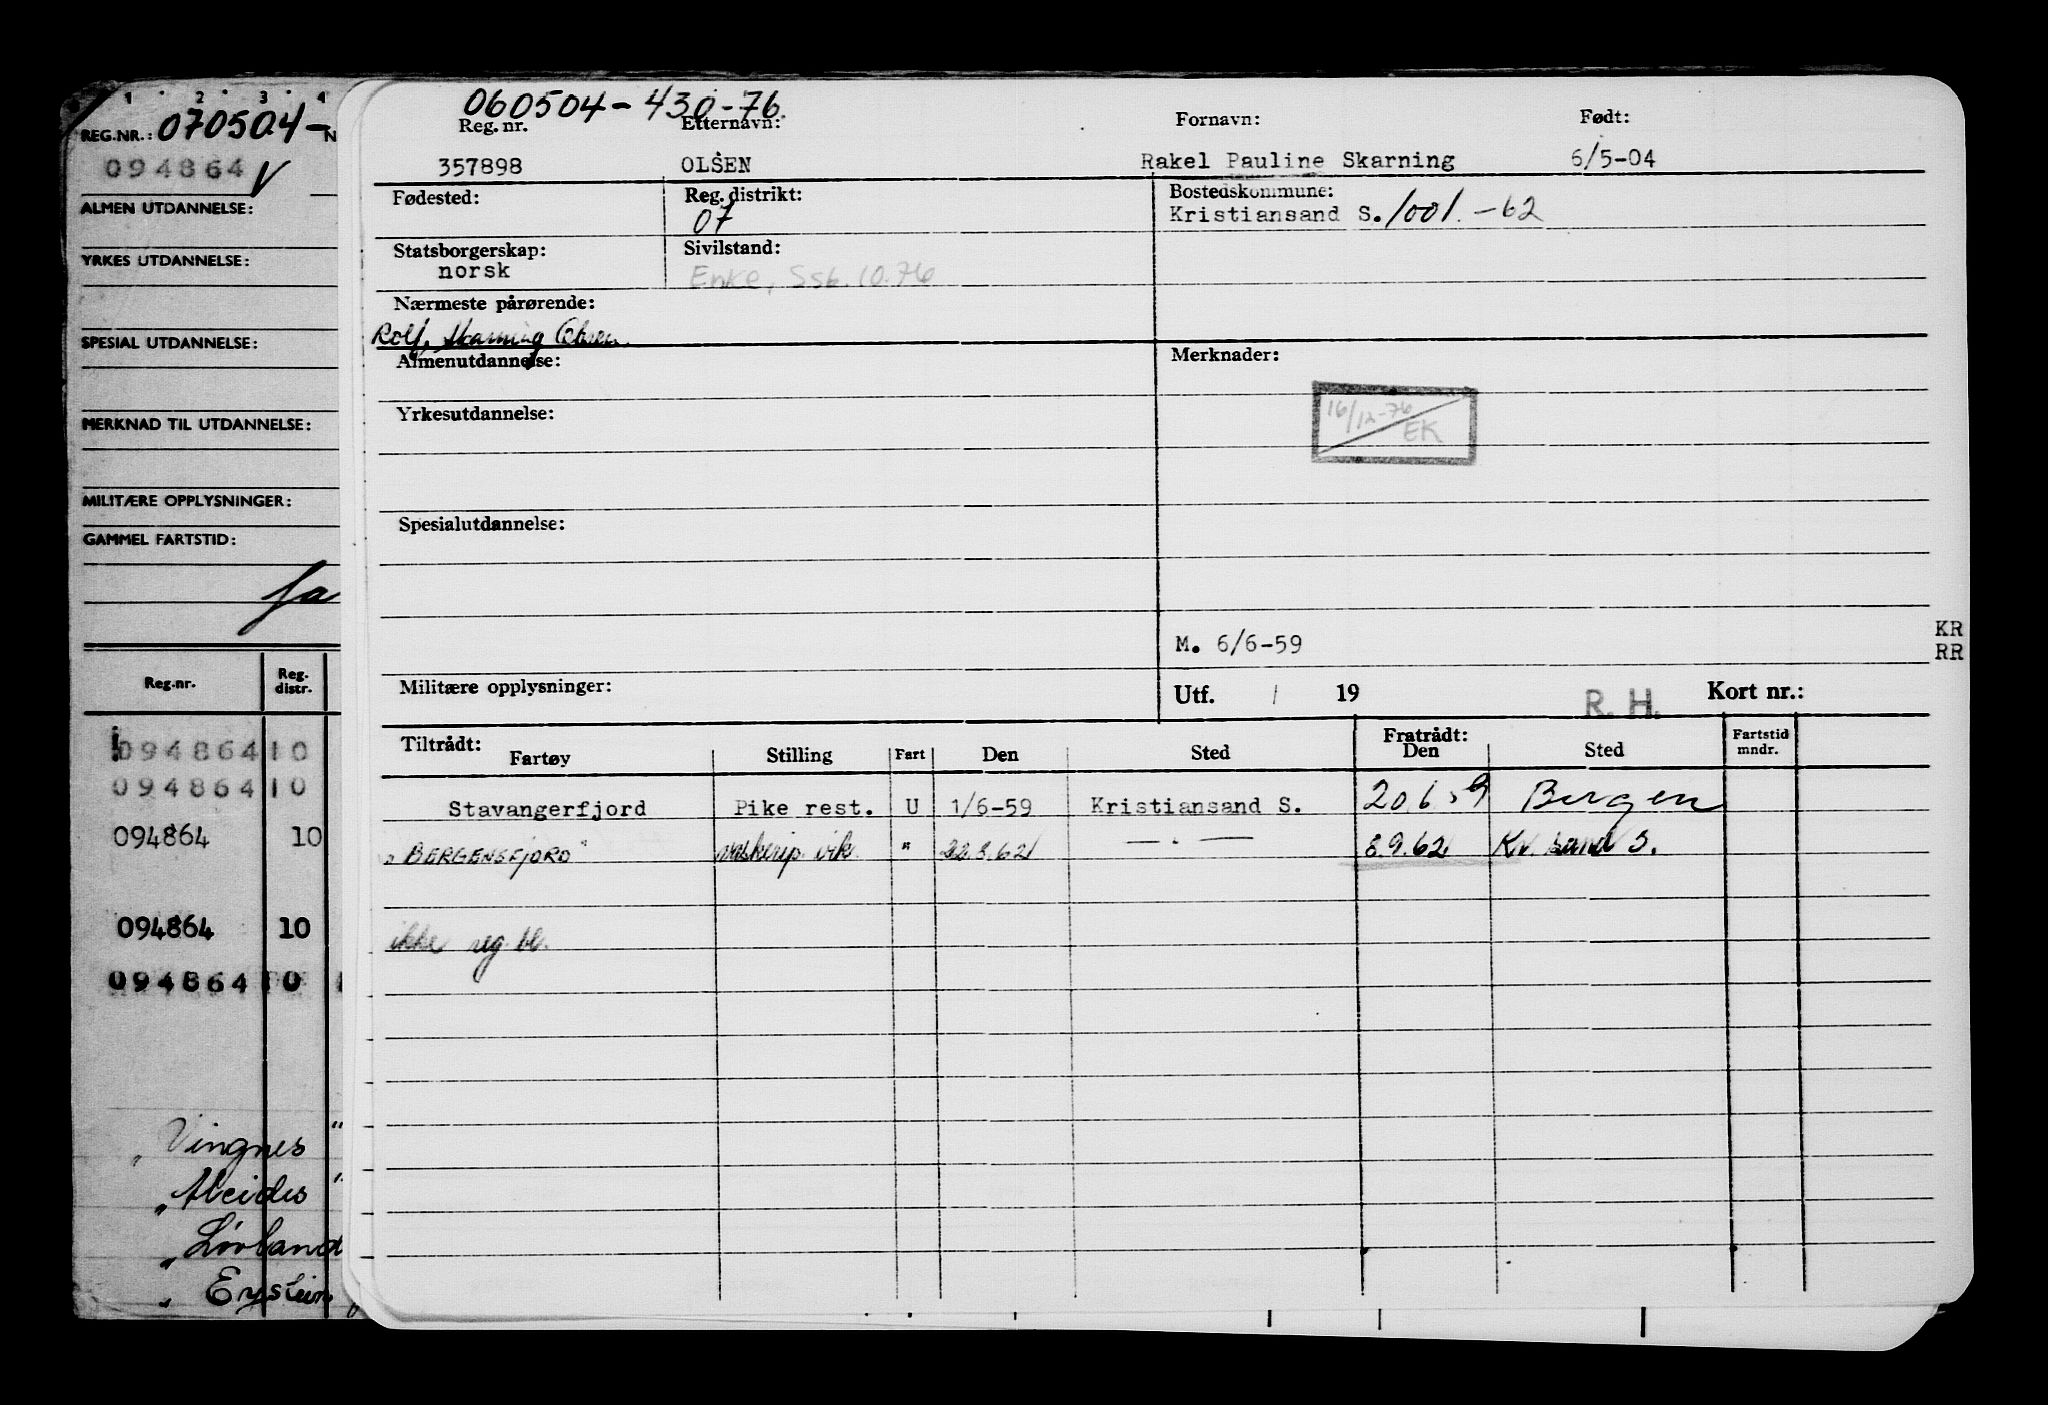 1 2 3 4
REG.NR.: 070504-
N
094864 V
ALMEN UTDANNELSE:
YRKES UTDANNELSE:
SPESIAL UTDANNELSE:
MERKNAD TIL UTDANNELSE:
MILITÆRE OPPLYSNINGER:
GAMMEL FARTSTID:
Ja
Reg-nr. Reg. distr.
094864 10
094864 10
094864 10
094864 10
094864 10
"Vingnes"
"
"Lovland
" Eystein
060504-430-76.
Reg. nr. Etternavn: Fornavn: Født:
357898 OLSEN Rakel Pauline Skarning 6/5-04
Fødested: Reg. distrikt: Bostedskommune:
07 Kristiansand S. 1001.-62
Statsborgerskap: Sivilstand:
norsk Enke, Ssb. 10.76
Nærmeste pårørende:
Rolf Skarning Olsen.
Almenutdannelse: Merknader:
16/12-76 EK
Yrkesutdannelse:
Spesialutdannelse:
M. 6/6-59
KR
RR
Militære opplysninger: Utf. / 19 R. H. Kort nr.:
Tiltrådt: Fratrådt: Fartstid mndr.
Fartøy Stilling Fart Den Sted Den Sted
Stavangerfjord Pike rest. U 1/6-59 Kristiansand S. 20 6 59 Bergen
"BERGENSFJORD" vik. " 22.8.62 — " — 8.9.62 Kr. sand S.
ikke reg. bl.